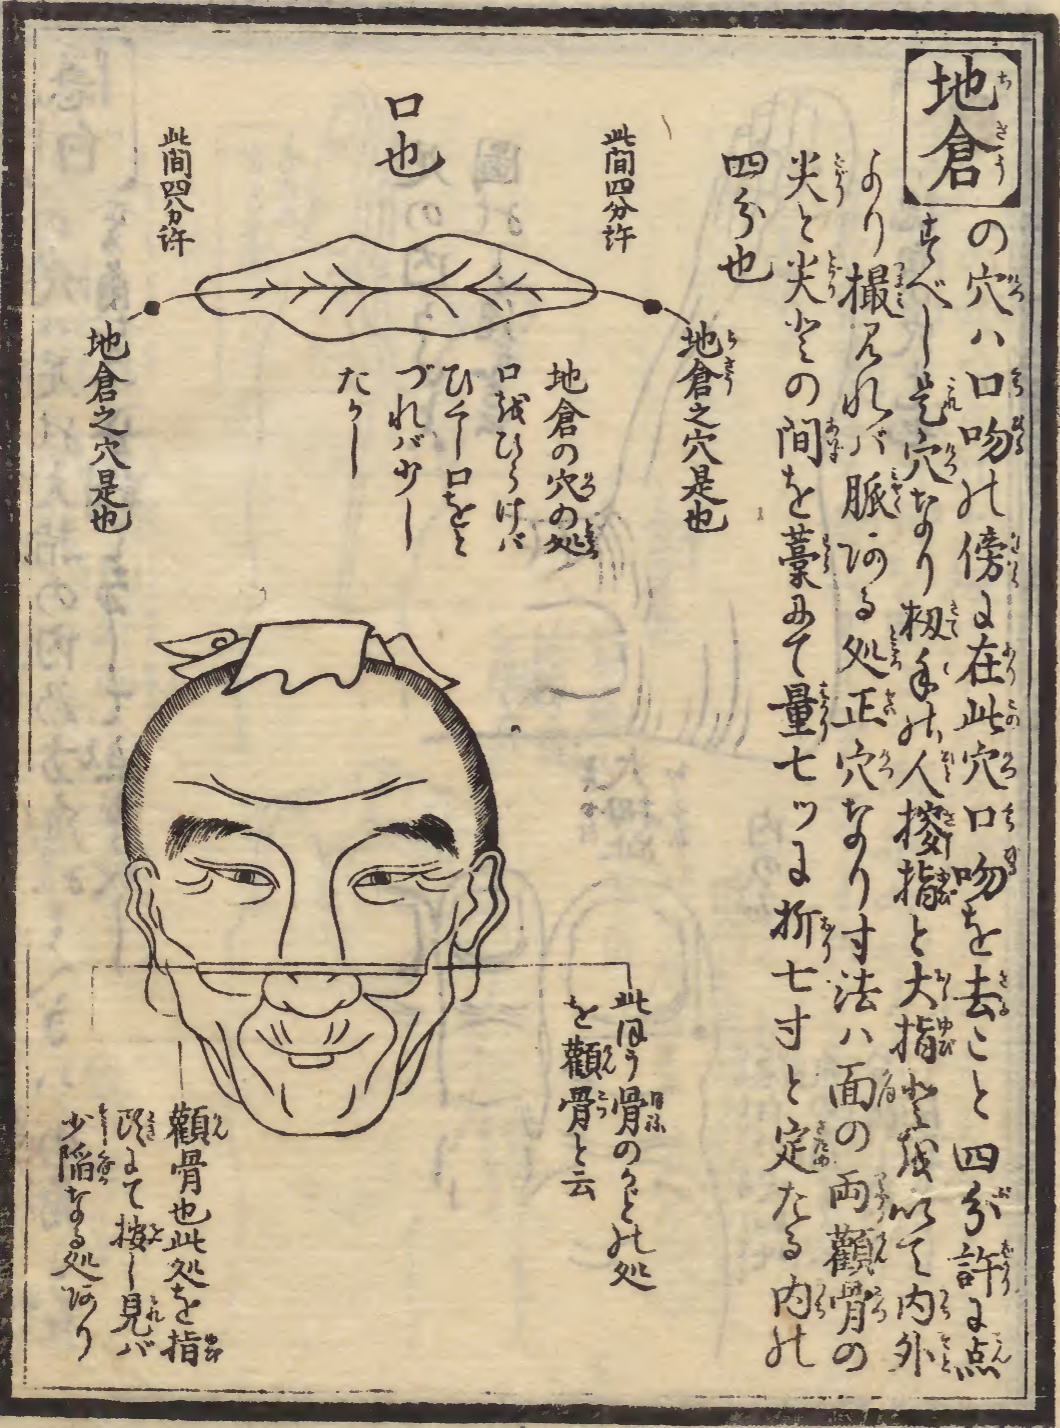 地倉
の穴ハ口吻の傍に在此穴口吻を去こと四分許に点
すべし是穴なり扨手の人 指と大指とを以て内外
より撮みれバ脈ある処正穴なり寸法ハ面の両顴骨の
尖と尖との間を藁にて量七ツに折七寸と定たる内の
四分也
此間四分許
口也
此間四分許
地倉之穴是也
地倉の穴の処
口を ひらけバ
ひくし口をと
づれバ少し
たかし
地倉之穴是也
此ほう骨のかどの処
を顴骨と云
顴骨也此処を指
頭にて按し見バ
少陥なる処あり